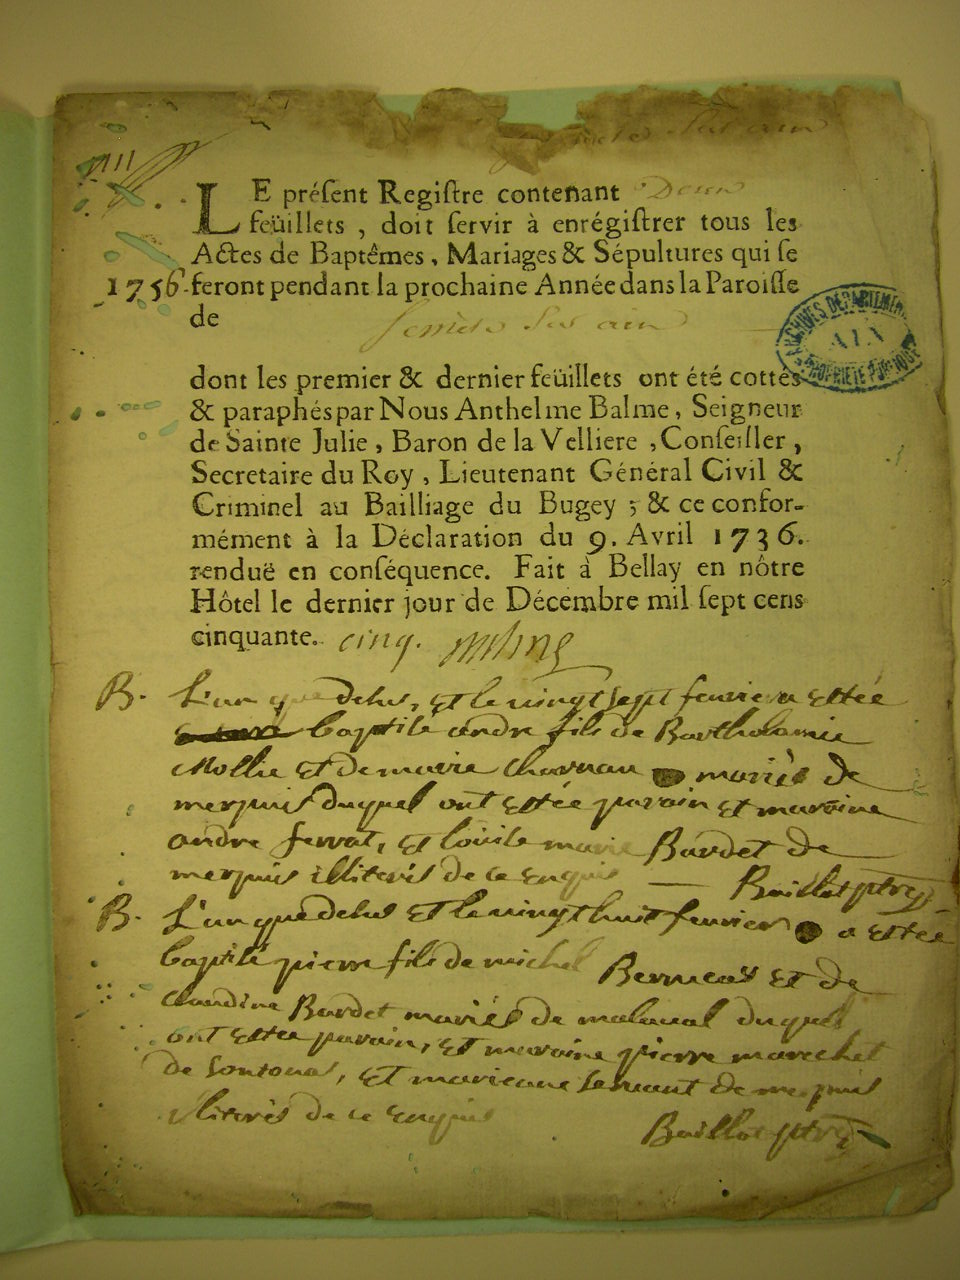 LE préſent Regiſtre contenant
feüillets, doit ſervir à enrégiſtrer tous les
Actes de Baptêmes, Mariages & Sépultures qui ſe
1756 feront pendant la prochaine Année dans la Paroiſſe
de
ARCHIVES DÉPARTEMEN
AIN
PROPRIÉTÉ PUBLIQUE
dont les premier & dernier feüillets ont été cottés
& paraphés par Nous Anthelme Balme, Seigneur
de Sainte Julie, Baron de la Velliere, Conſeiller,
Secretaire du Roy, Lieutenant Général Civil &
Criminel au Bailliage du Bugey; & ce confor-
mément à la Déclaration du 9. Avril 1736.
renduë en conſéquence. Fait à Bellay en nôtre
Hôtel le dernier jour de Décembre mil ſept cens
cinquante. cinq.
B. L'an que deſus, et le vingt ſept feurier a eſtée
baptiſé andre fils de Bartholomie
Mollie et de marie mariés de
duquel ont eſtée parain et maraine
andre ferrat, et loüiſe marie Bardet de
illiterés de ce enquis Baillot ptre
B. L'an que deſus et le vingt huit feurier a eſtée
baptiſé pierre fils de michel et de
claudine Bardet mariés de malaual duquel
ont eſtée parain, et maraine pierre marechel
de, et mariane de
illiterés de ce enquis
Baillot ptre